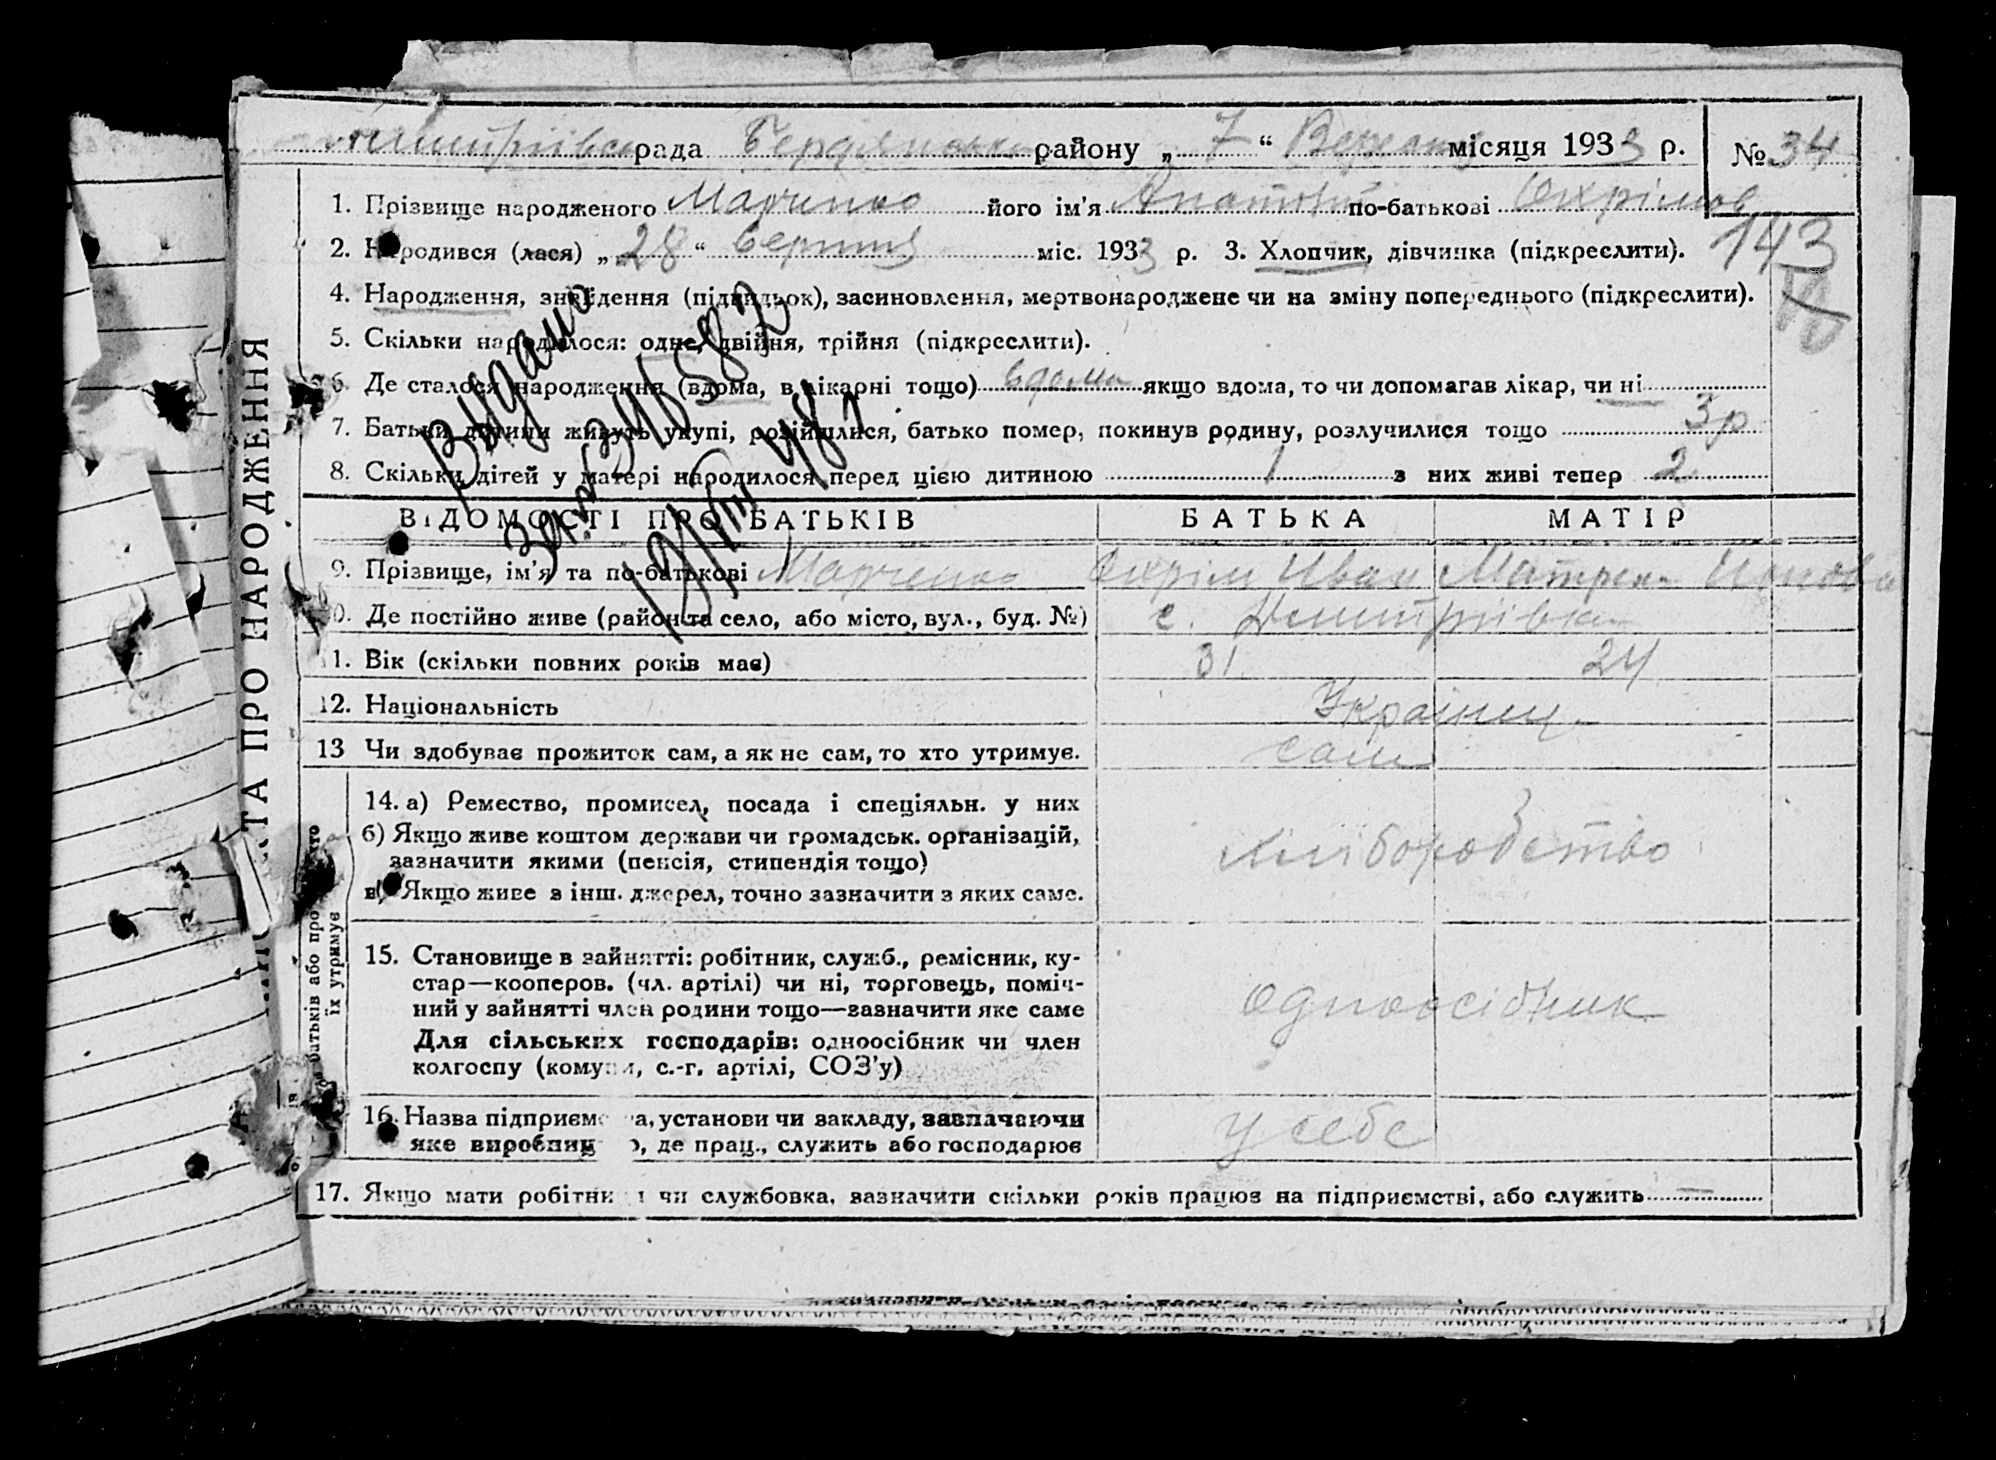 рада Бердянськ району „ 7 “ Вересня місяця 1933 р. № 34
1. Прізвище народженого Марченко його ім'я Анатолій по-батькові Охрімов
143
2. Народився (лася) „ 28 “ серпня міс. 1933 р. 3. Хлопчик, дівчинка (підкреслити).
4. Народження, знайдення (підкидьок), засиновлення, мертвонароджене чи на зміну попереднього (підкреслити).
5. Скільки народилося: одне, двійня, трійня (підкреслити).
6. Де сталося народження (вдома, в лікарні тощо) вдома якщо вдома, то чи допомагав лікар, чи ні
7. Батьки дитини живуть укупі, розійшлися, батько помер, покинув родину, розлучилися тощо 3 р
8. Скільки дітей у матері народилося перед цією дитиною 1 з них живі тепер 2
Видано
ВІДОМОСТІ ПРО БАТЬКІВ БАТЬКА МАТІР
9. Прізвище, ім'я та по-батькові Марченко Охрім Иван Матрена
10. Де постійно живе (район та село, або місто, вул., буд. №) с. Дмитрівка
11. Вік (скільки повних років має) 31 24
12. Національність Українці
13 Чи здобуває прожиток сам, а як не сам, то хто утримує. сам
14. а) Ремество, промисел, посада і спеціяльн. у них
б) Якщо живе коштом держави чи громадськ. організацій,
зазначити якими (пенсія, стипендія тощо)
в) Якщо живе з інш. джерел, точно зазначити з яких саме.
хліборобство
15. Становище в зайнятті: робітник, служб., ремісник, ку-
стар—кооперов. (чл. артілі) чи ні, торговець, поміч-
ний у зайнятті член родини тощо—зазначити яке саме
Для сільських господарів: одноосібник чи член
колгоспу (комуни, с.-г. артілі, СОЗ'у)
одноосібник
16. Назва підприємства, установи чи закладу, зазначаючи
яке виробництво, де прац., служить або господарює
у себе
17. Якщо мати робітниця чи службовка, зазначити скільки років працює на підприємстві, або служить —
ТА ПРО НАРОДЖЕННЯ
батьків або про
їх утримує